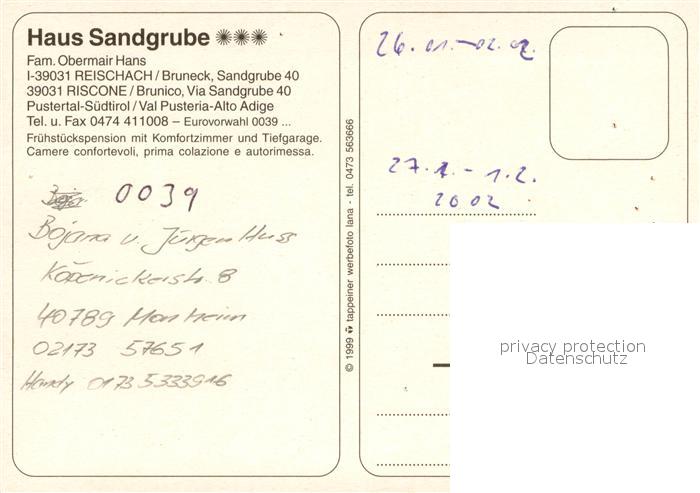 Haus Sandgrube ✺✺✺
Fam. Obermair Hans
I-39031 REISCHACH / Bruneck, Sandgrube 40
39031 RISCONE / Brunico, Via Sandgrube 40
Pustertal-Südtirol / Val Pusteria-Alto Adige
Tel. u. Fax 0474 411008 – Eurovorwahl 0039 ...
Frühstückspension mit Komfortzimmer und Tiefgarage.
Camere confortevoli, prima colazione e autorimessa.
0039
Bojana u. Jürgen Huss
Köpenickerstr. 8
40789 Monheim
02173 57651
Handy 0173 5333916
© 1999 tappeiner werbefoto lana - tel. 0473 563666
26.01.-02.02.
27.1. - 1.2.
2002
privacy protection
Datenschutz